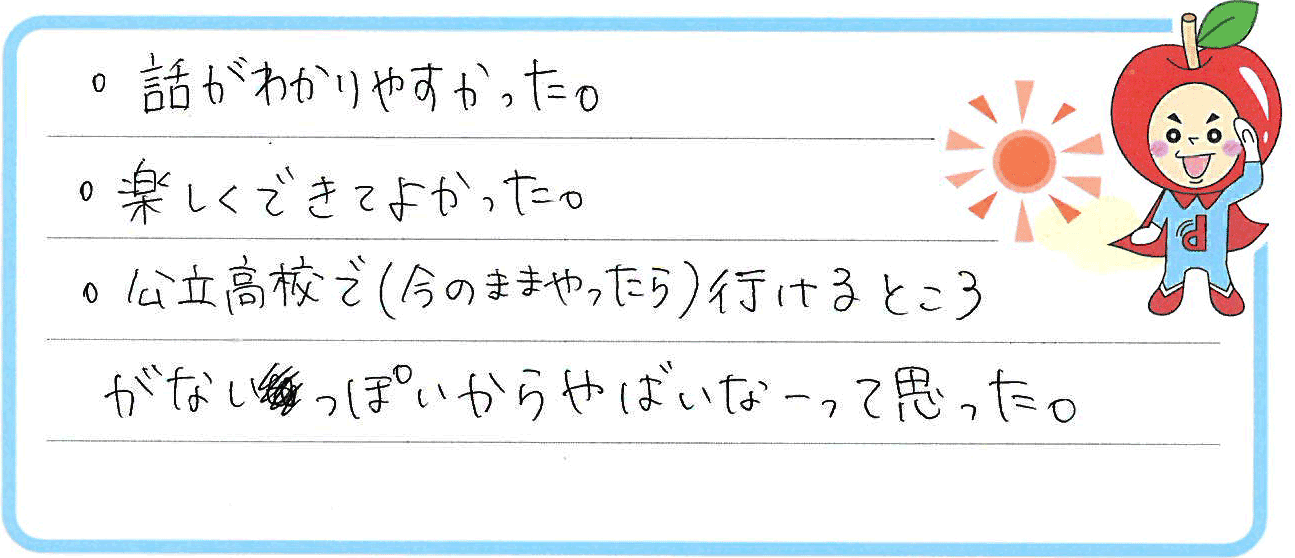 。話がわかりやすかった。
。楽しくできてよかった。
。公立高校で(今のままやったら)行けるところ
がないっぽいからやばいなーって思った。